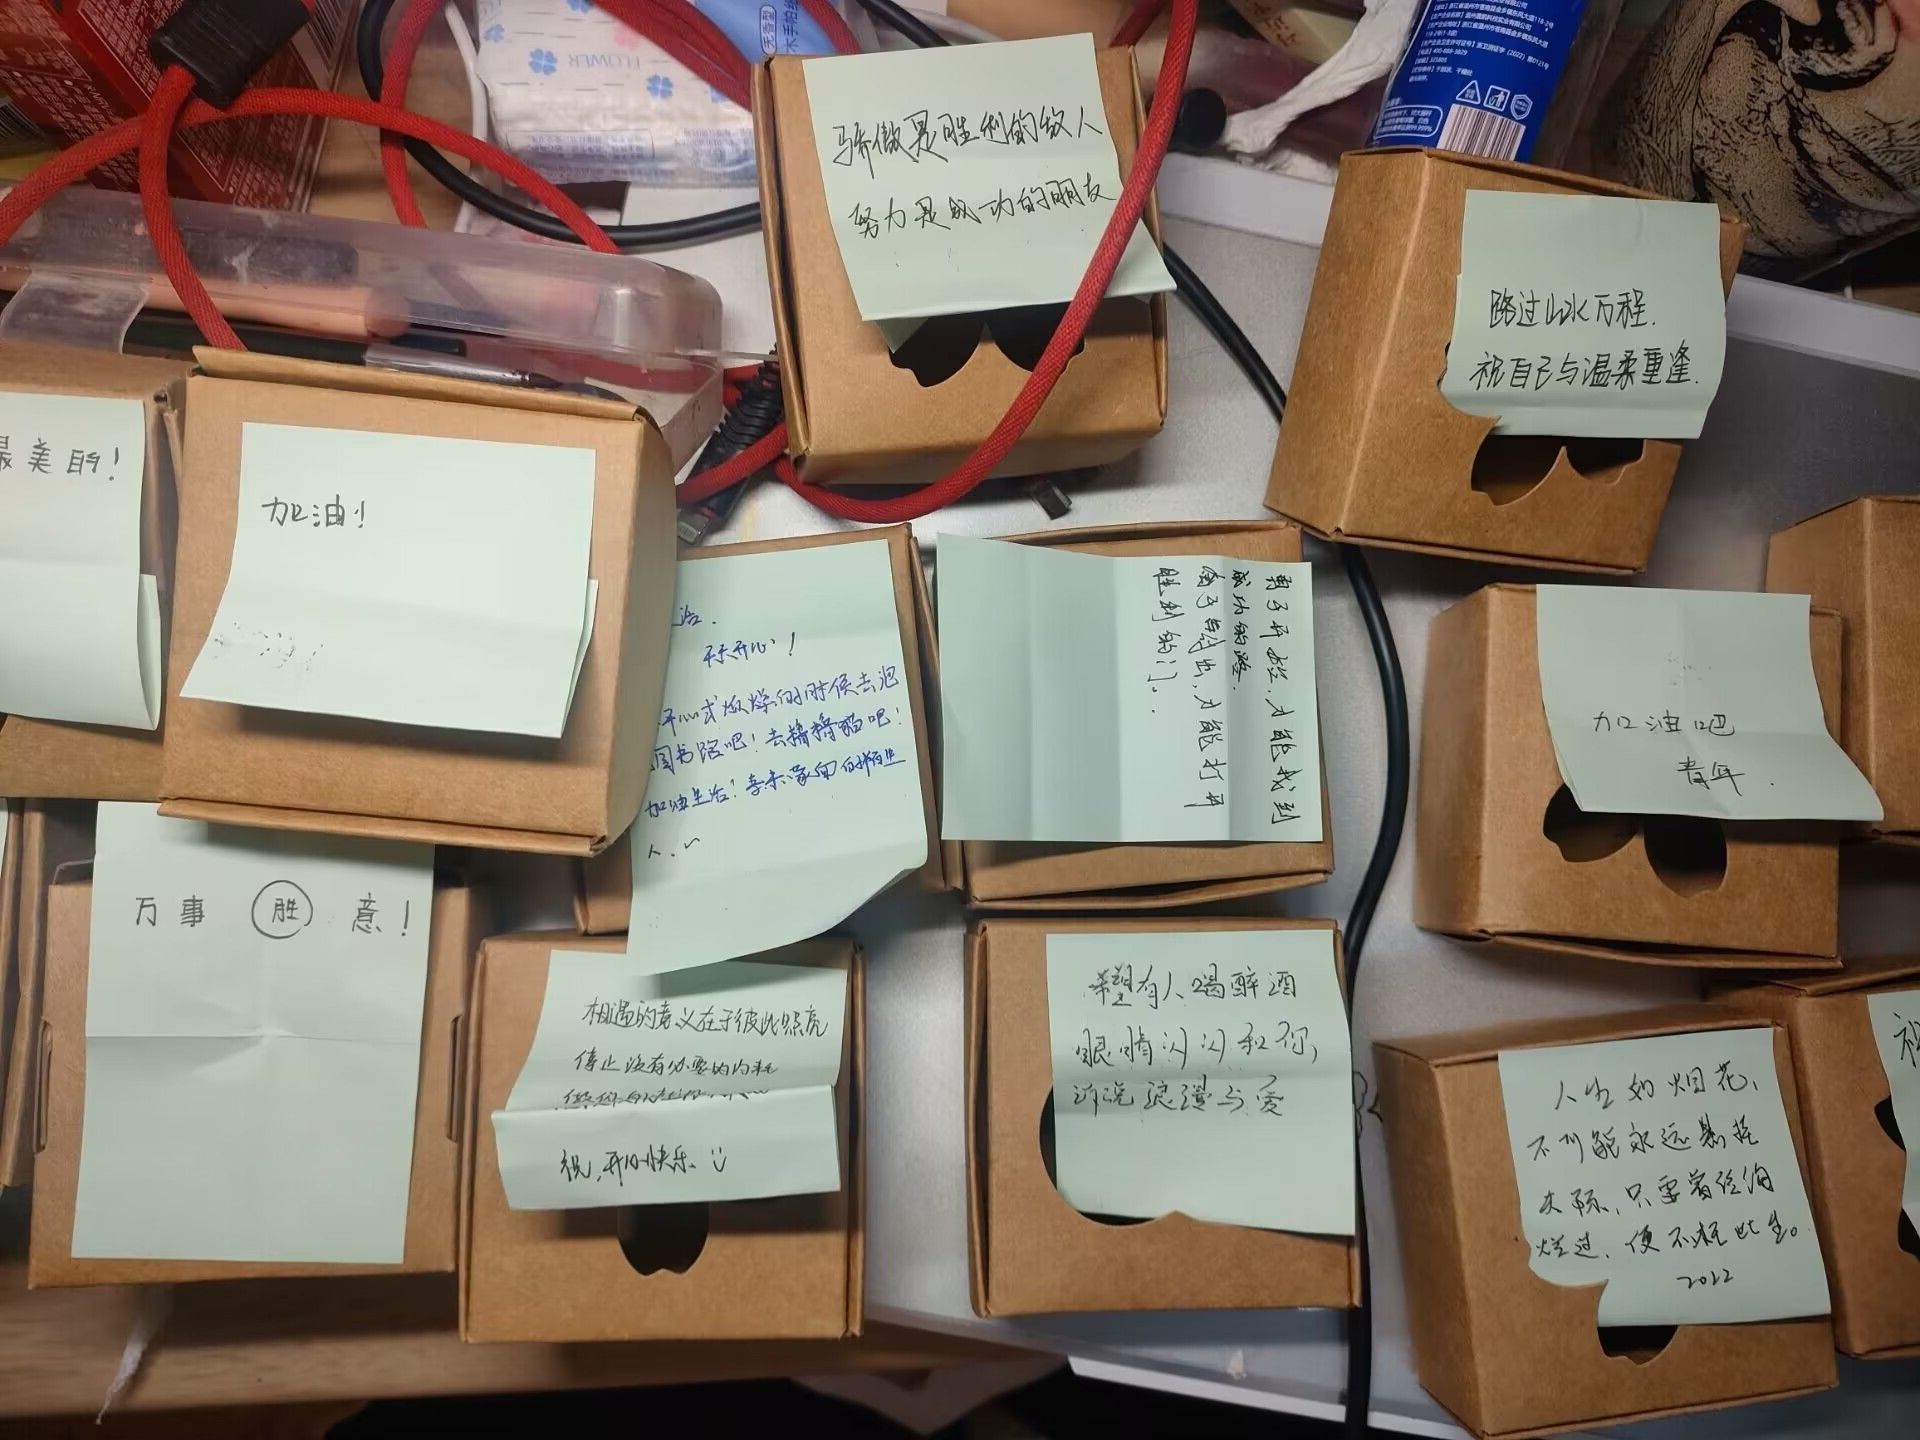 骄傲是胜利的敌人
努力是成功的朋友
路过山水万程.
祝自己与温柔重逢.
最美的!
加油!
活.
天天开心!
开心或烦燥的时候去泡
图书馆吧! 去撸撸猫吧!
加油生活!
人.
勇于开拓,才能找到
成功的路.
奋于
,才能打开
胜利的门.
加油吧
青年.
万事 胜 意!
相遇的意义在于彼此照亮
停止没有必要的内耗
祝,开心快乐.
希望有人喝醉酒
眼睛闪闪和你,
诉说浪漫与爱
人生如烟花,
不可能永远悬挂
天际,只要曾经绚
烂过,便不枉此生。
2022
祝
FLOWER